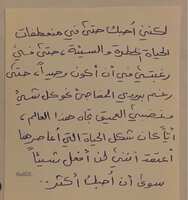 لكنني أحبك حتى في منعطفات
الحياة الخطرة والسيئة، حتى في
رغبتي في أن أكون وحيداً، حتى
رغم برودي المفاجئ نحو كل شيء
وبغضي العميق تجاه هذا العالم،
أياً كان شكل الحياة التي أعاصرها
أعتقد أنني لن أفعل شيئاً
سوى أن أحبك أكثر.